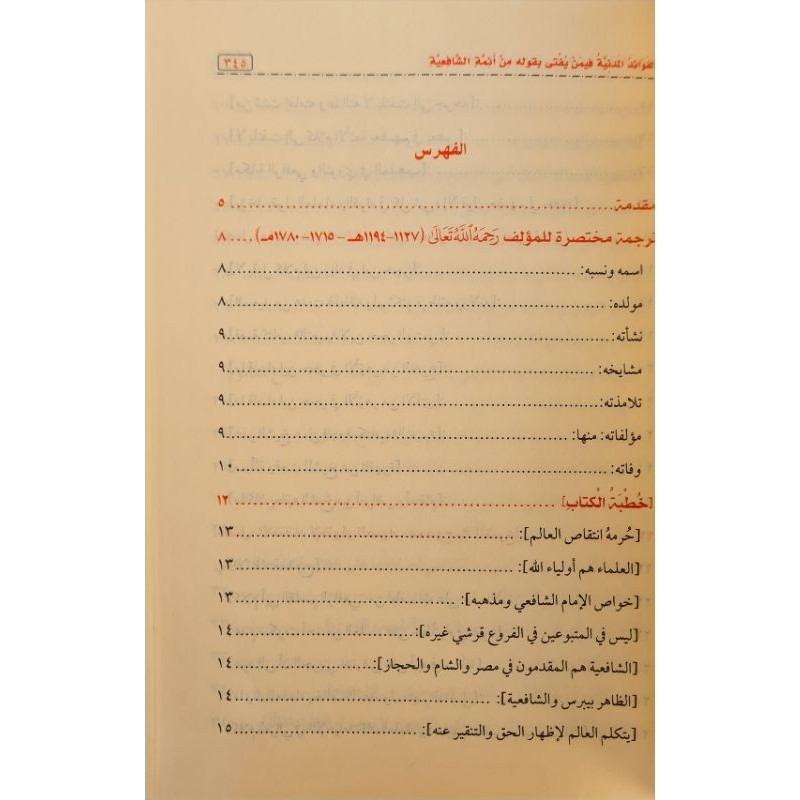 الفوائد المدنية فيمن يُفْتى بقوله من أئمة الشافعية ٣٤٥
الفهرس
مقدمة ٥
ترجمة مختصرة للمؤلف رَحِمَهُ ٱللَّهُ تَعَالَىٰ (١١٢٧-١١٩٤هـ - ١٧١٥-١٧٨٠مـ) ٨
اسمه ونسبه: ٨
مولده: ٨
نشأته: ٩
مشايخه: ٩
تلامذته: ٩
مؤلفاته: منها: ٩
وفاته: ١٠
[خُطْبَةُ الْكتاب] ١٢
[حُرمةُ انتقاص العالم]: ١٣
[العلماء هم أولياء الله]: ١٣
[خواص الإمام الشافعي ومذهبه]: ١٣
[ليس في المتبوعين في الفروع قرشي غيره]: ١٤
[الشافعية هم المقدمون في مصر والشام والحجاز]: ١٤
[الظاهر بيبرس والشافعية]: ١٤
[يتكلم العالم لإظهار الحق والتنقير عنه]: ١٥